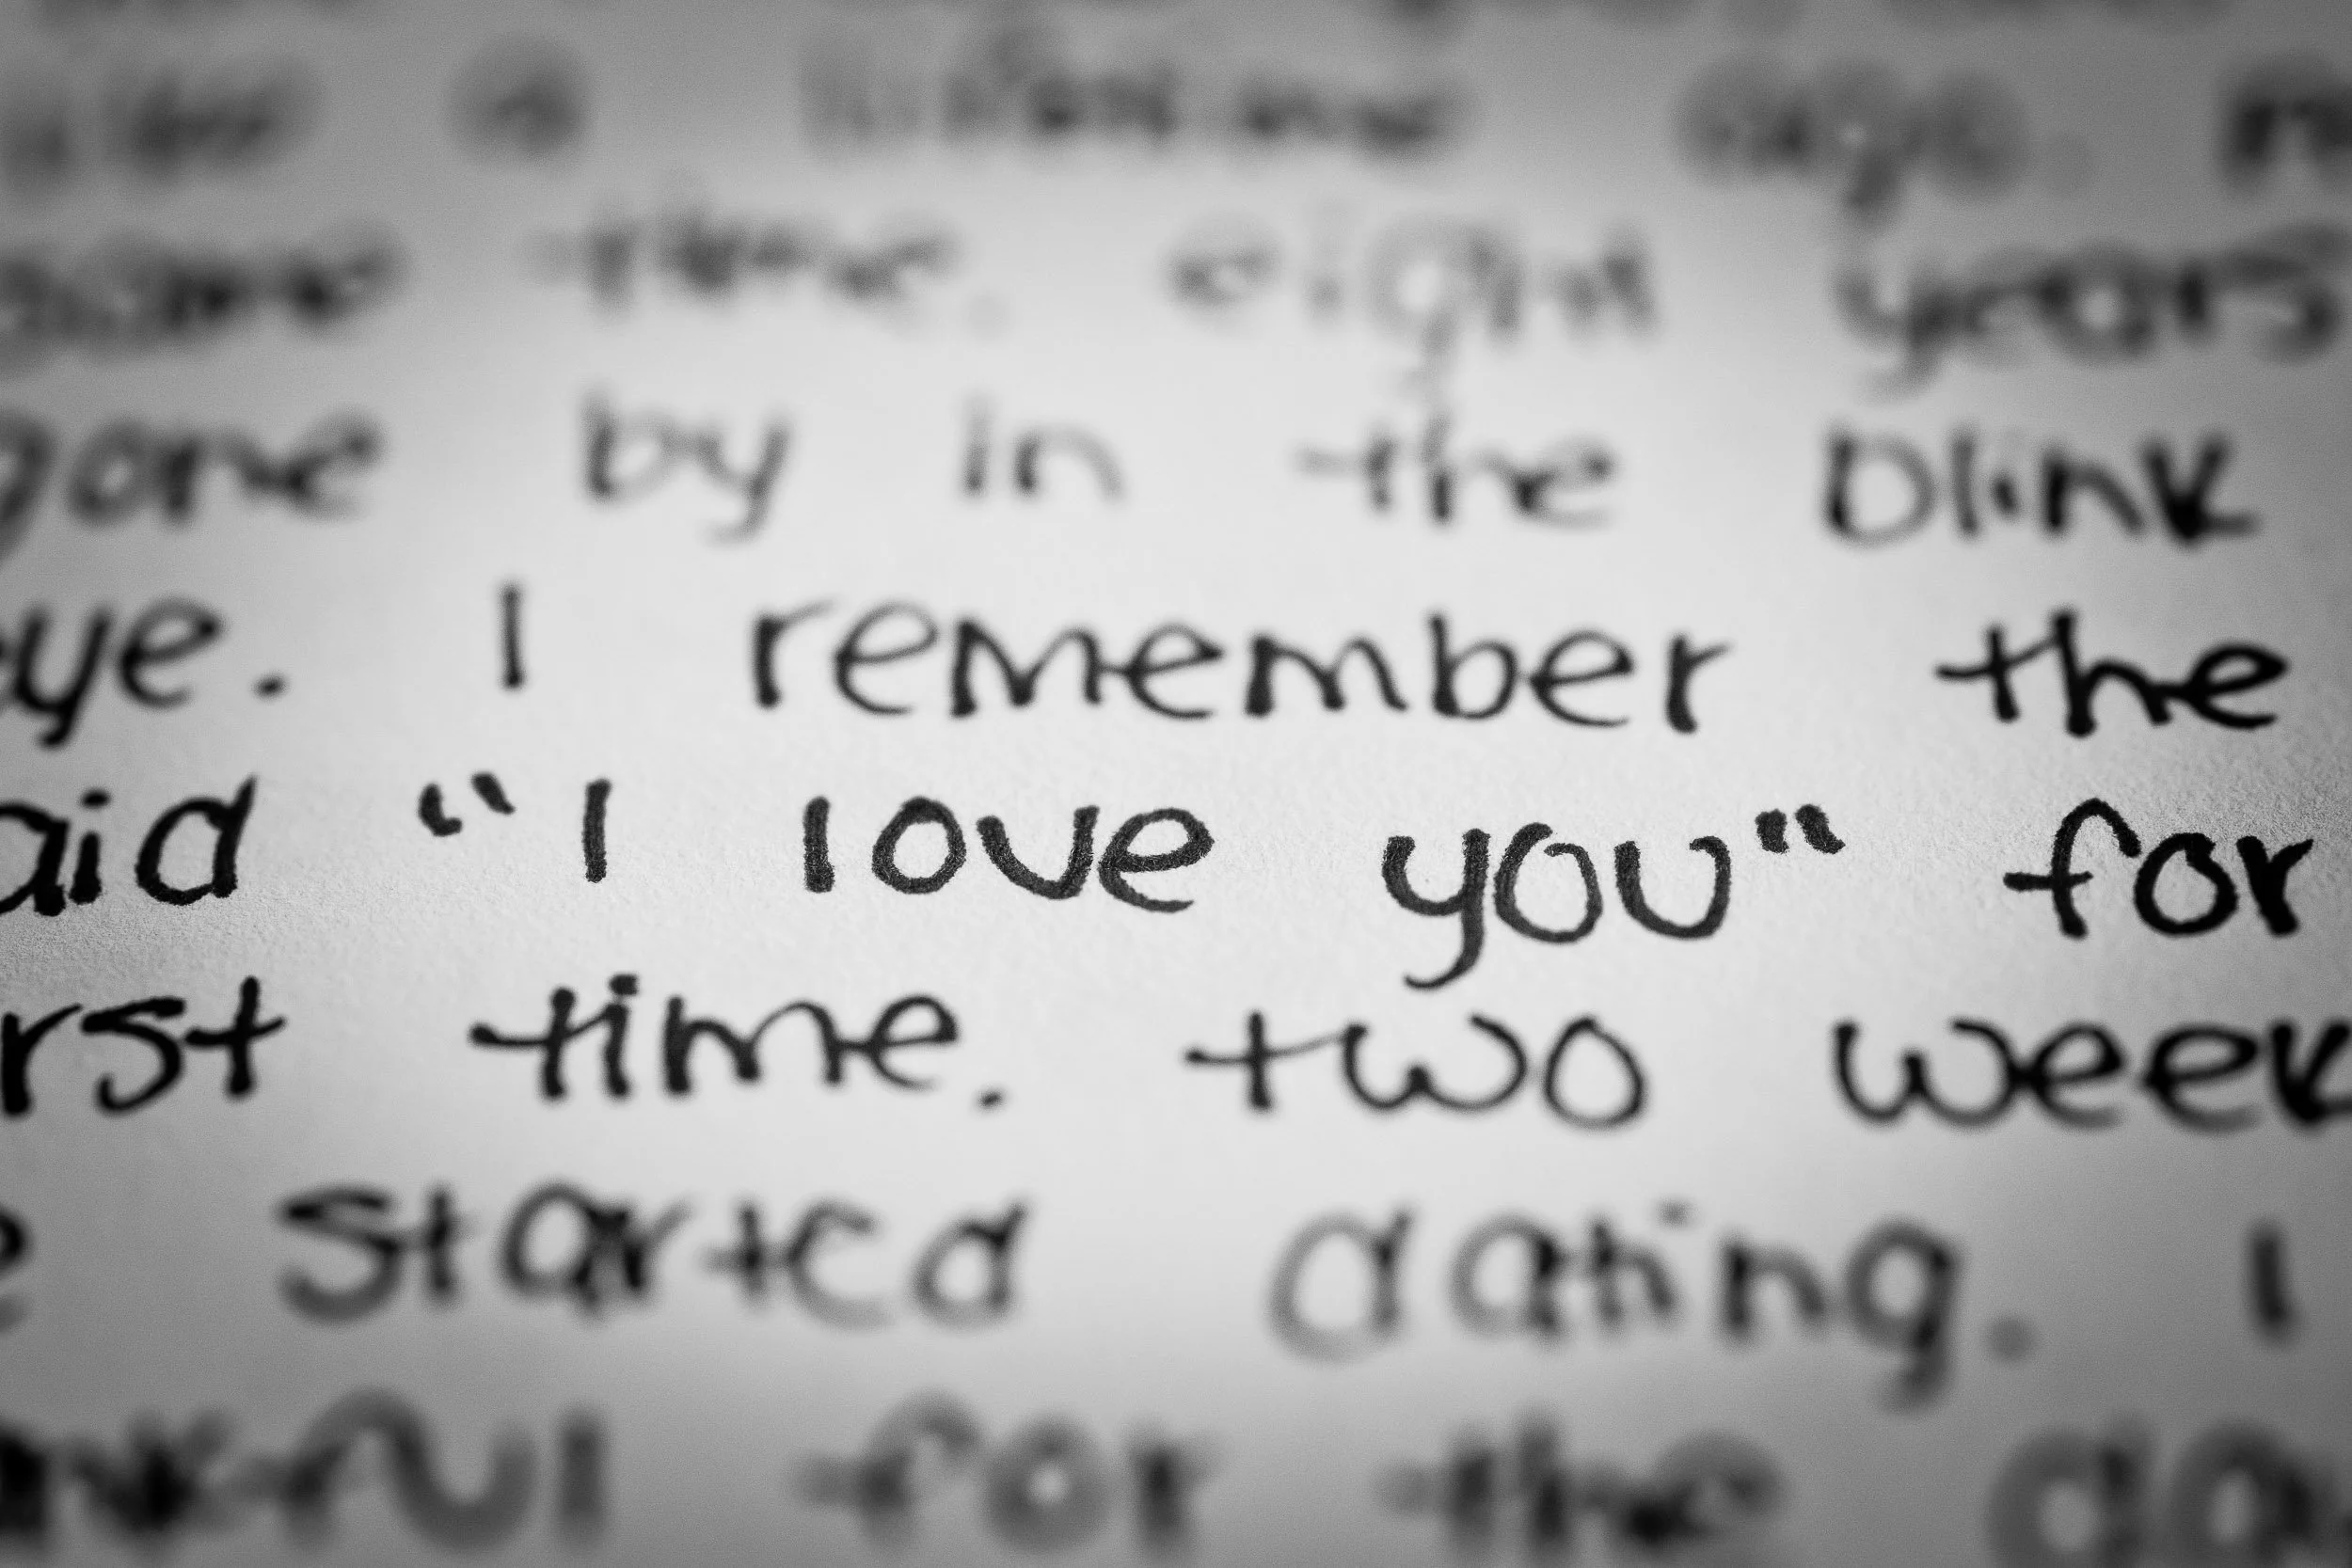 a lifetime ago.
same time. eight years
gone by in the blink
eye. I remember the
aid “I love you” for
rst time. two week
e started dating. I
for the da